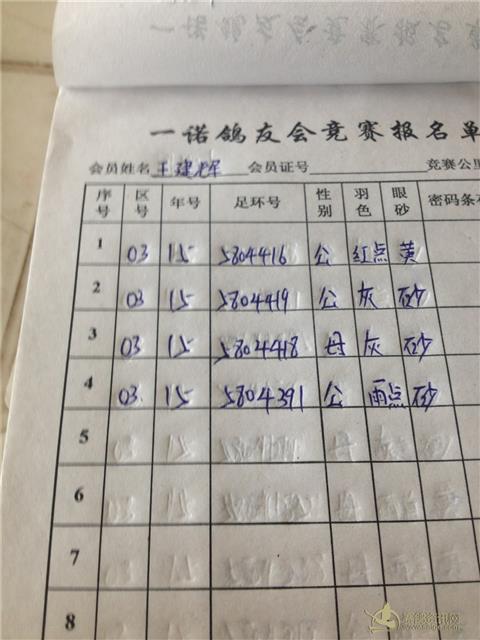 一诺鸽友会竞赛报名单
会员姓名 王建辉 会员证号 竞赛公里
序号 区号 年号 足环号 性别 羽色 眼砂 密码条
1 03 15 5804416 公 红点 黄
2 03 15 5804419 公 灰 砂
3 03 15 5804418 母 灰 砂
4 03 15 5804391 公 雨点 砂
5
6
7
8